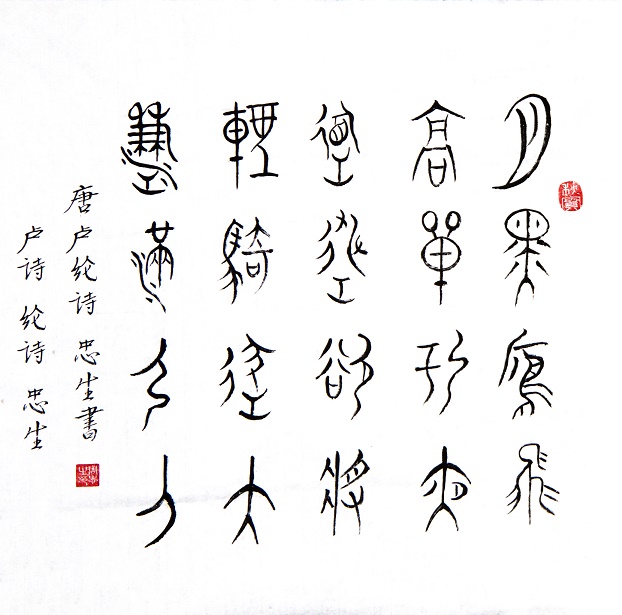 月黑鴈飛
高單于夜
遁逃欲將
輕騎逐大
雪滿弓刀
唐卢纶诗 忠生書
卢诗 纶诗 忠生